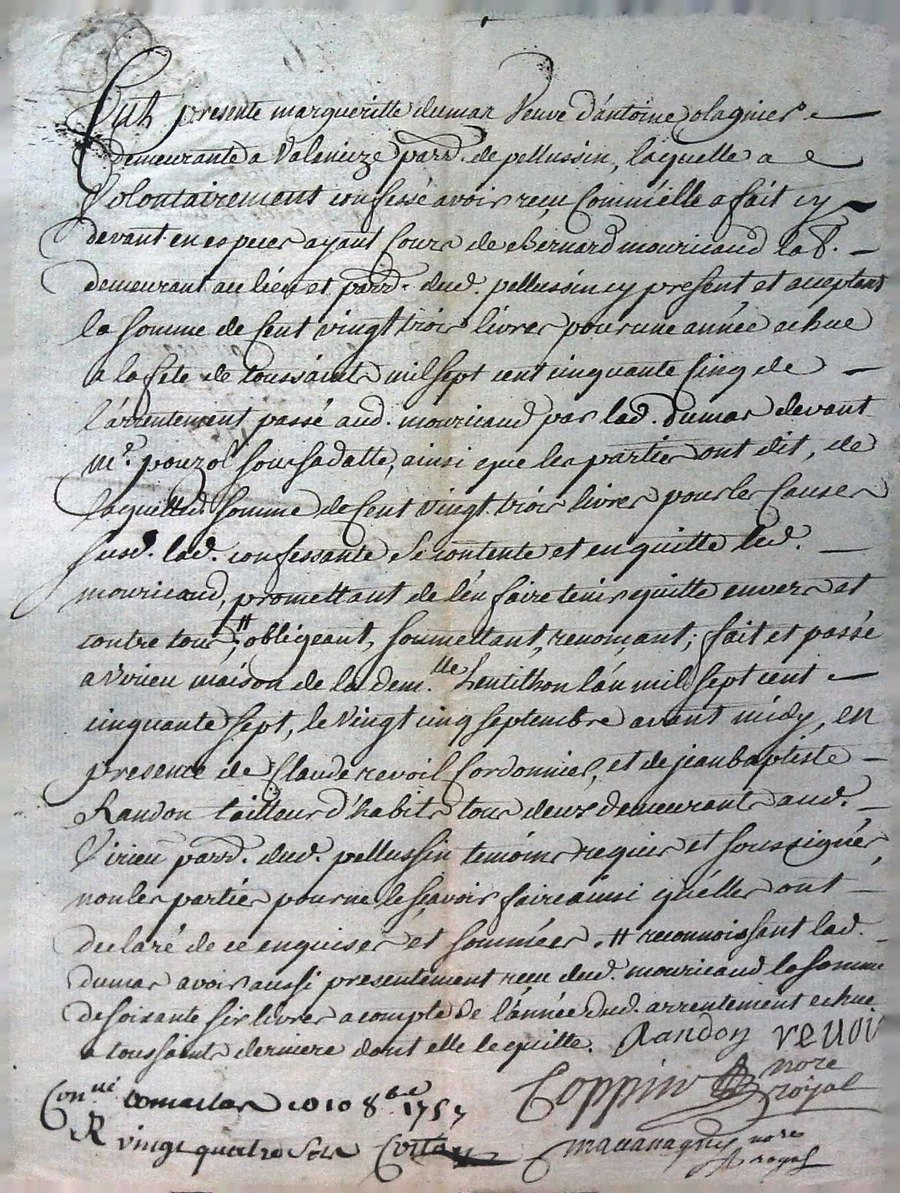 fut presente margueritte dumas veuve d'antoine olagnier
demeurante a Valencize parr. de pellussin, laquelle a
volontairement confessé avoir reçu Comm'élle a fait cy
devant en especes ayant Cours de Bernard mouricaud lab.
demeurant au lieu et parr. dud. pellussin cy present et acceptant
la somme de Cent vingt trois livres pour une année echue
a la fete de toussaints mil sept cent cinquante Cinq de
l'arrentement passé aud. mouricaud par lad. dumas devant
me. pouzol sous sa datte, ainsi que les parties ont dit, de
laquelle somme de Cent vingt trois livres pour les Causes
susd. lad. confessante se contente et en quitte led.
mouricaud, promettant de l'en faire tenir quitte envers et
contre tous, # obligeant, soumettant, renonçant; fait et passé
a Virieu maison de la dem.lle Lentilhon l'an mil sept cent
cinquante sept, le vingt cinq septembre avant midy, en
presence de Claude revoil Cordonnier, et de jean baptiste
Randon tailleur d'habits tous deux demeurants aud.
Virieu parr. dud. pellussin temoins requis et soussignés,
non les parties pour ne le sçavoir faire ainsi qu'élles ont
declaré de ce enquises et sommées. # reconnoissant lad.
dumas avoir aussi presentement reçu dud. mouricaud la somme
de soixante six livres a compte de l'année dud. arrentement echue
a toussaints derniere dont elle le quitte. Randon revoil
Coppin nore royal
Con.né le 10 8bre 1757
R vingt quatre sols
nore royal